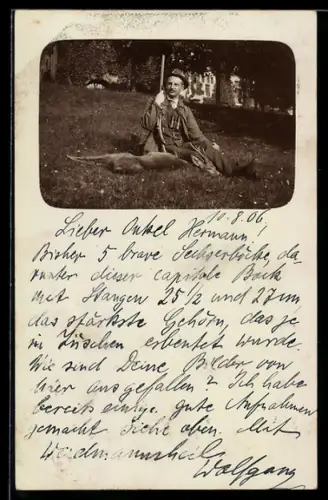 10.8.06.
Lieber Onkel Hermann!
Bisher 5 brave Sechserböcke, da-
runter dieser capitale Bock
mit Stangen 25 1/2 und 27 cm
das stärkste Gehörn, das je
in Züschen erbeutet wurde.
Wie sind Deine Bilder von
hier ausgefallen? Ich habe
bereits einige gute Aufnahmen
gemacht. Siehe oben. Mit
Weidmannsheil
Wolfgang